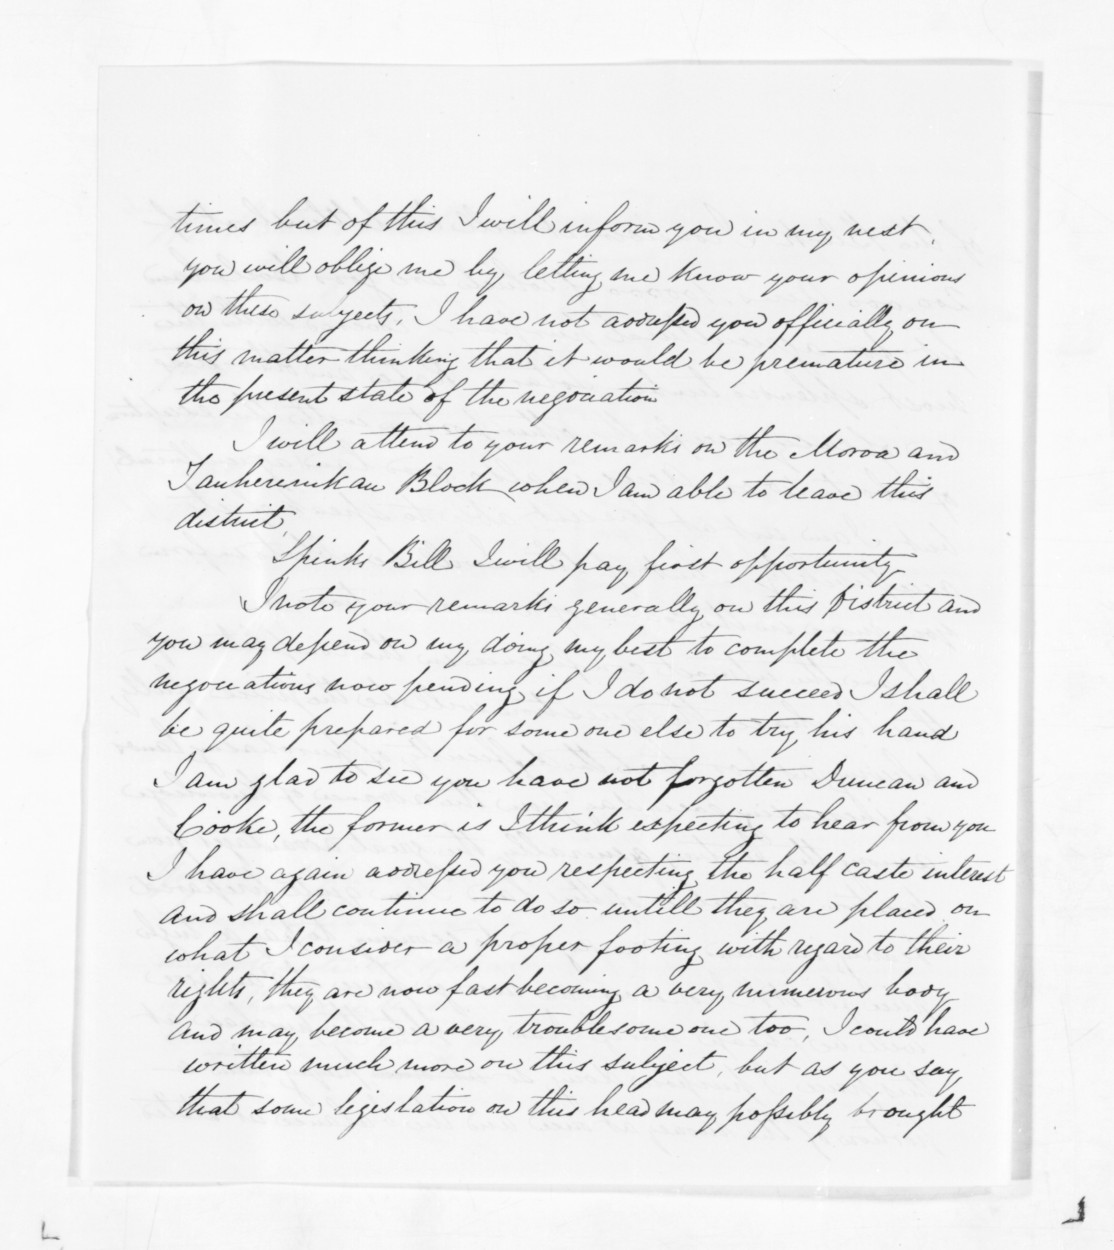 times but of this I will inform you in my next,
you will oblige me by letting me know your opinions
on these subjects, I have not addressed you officially on
this matter thinking that it would be premature in
the present state of the negociation
I will attend to your remarks on the Moroa and
Tauherenikau Block when I am able to leave this
district,
Spinks Bill I will pay first opportunity
I note your remarks generally on this District and
you may depend on my doing my best to complete the
negociations now pending if I do not succeed I shall
be quite prepared for some one else to try his hand
I am glad to see you have not forgotten Duncan and
Cooke, the former is I think expecting to hear from you
I have again addressed you respecting the half caste interest
and shall continue to do so untill they are placed on
what I consider a proper footing with regard to their
rights, they are now fast becoming a very numerous body
and may become a very troublesome one too, I could have
written much more on this subject, but as you say
that some legislation on this head may possibly brought